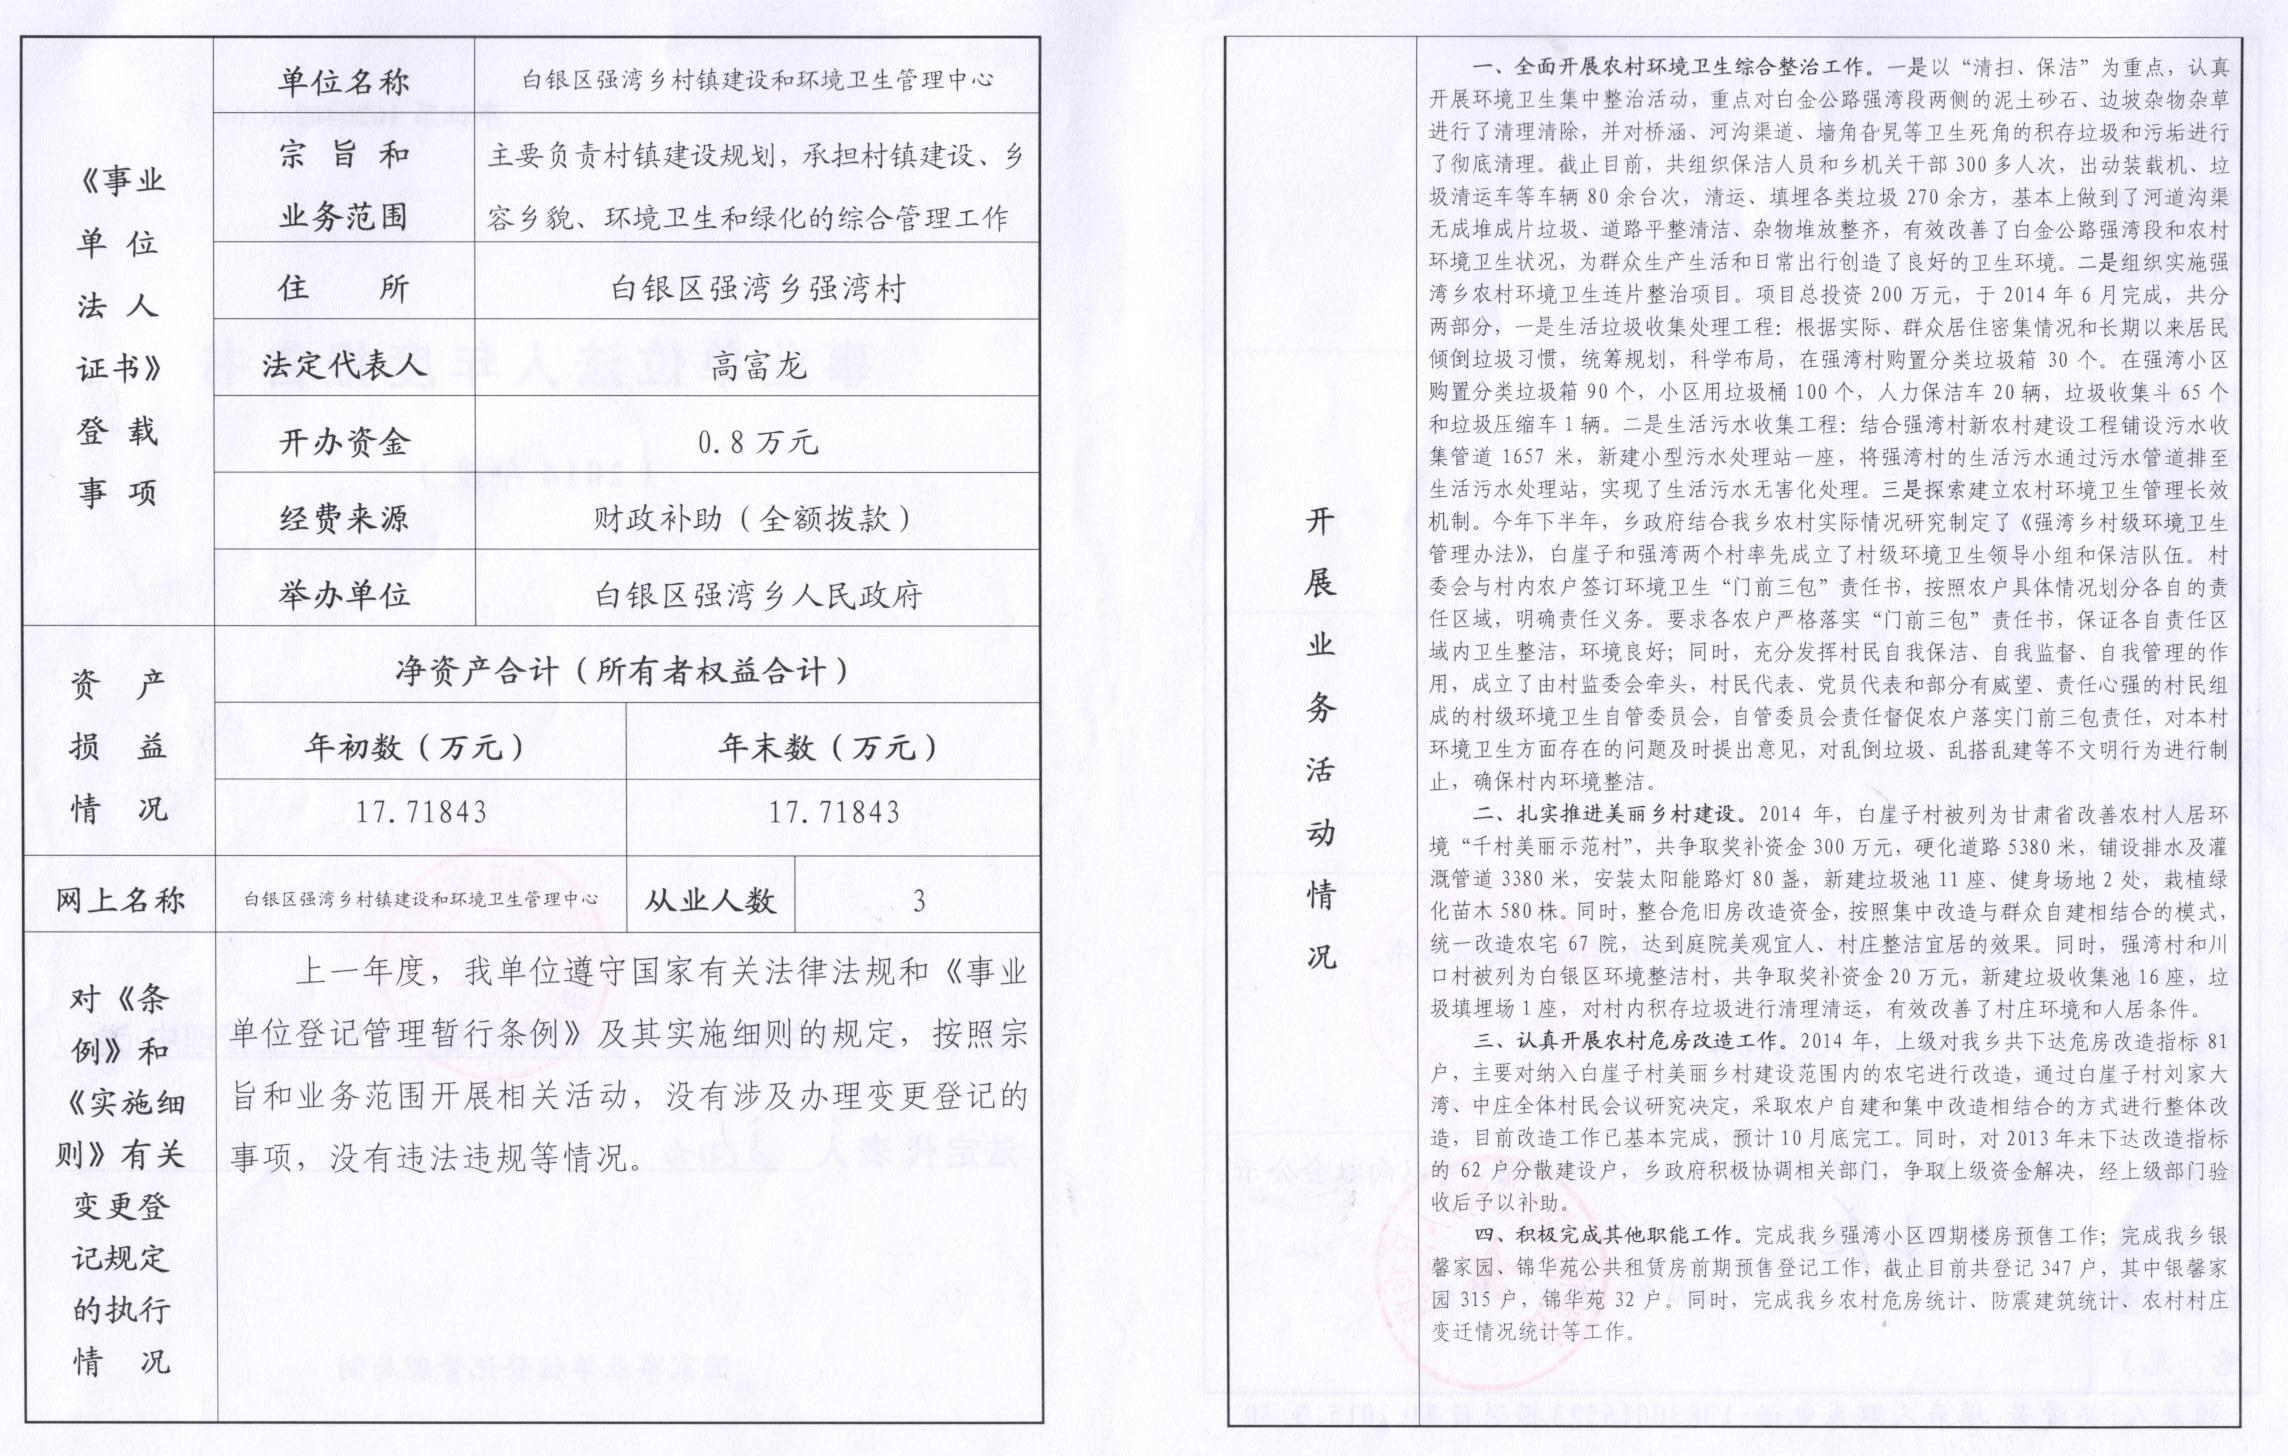 《事业
单位
法人
证书》
登载
事项
单位名称
白银区强湾乡村镇建设和环境卫生管理中心
宗旨和
业务范围
主要负责村镇建设规划，承担村镇建设、乡
容乡貌、环境卫生和绿化的综合管理工作
住所
白银区强湾乡强湾村
法定代表人
高富龙
开办资金
0.8万元
经费来源
财政补助（全额拨款）
举办单位
白银区强湾乡人民政府
资产
损益
情况
净资产合计（所有者权益合计）
年初数（万元）
年末数（万元）
17.71843
17.71843
网上名称
白银区强湾乡村镇建设和环境卫生管理中心
从业人数
3
对《条
例》和
《实施细
则》有关
变更登
记规定
的执行
情况
上一年度，我单位遵守国家有关法律法规和《事业
单位登记管理暂行条例》及其实施细则的规定，按照宗
旨和业务范围开展相关活动，没有涉及办理变更登记的
事项，没有违法违规等情况。
开
展
业
务
活
动
情
况
一、全面开展农村环境卫生综合整治工作。一是以“清扫、保洁”为重点，认真
开展环境卫生集中整治活动，重点对白金公路强湾段两侧的泥土砂石、边坡杂物杂草
进行了清理清除，并对桥涵、河沟渠道、墙角旮旯等卫生死角的积存垃圾和污垢进行
了彻底清理。截止目前，共组织保洁人员和乡机关干部300多人次，出动装载机、垃
圾清运车等车辆80余台次，清运、填埋各类垃圾270余方，基本上做到了河道沟渠
无成堆成片垃圾、道路平整清洁、杂物堆放整齐，有效改善了白金公路强湾段和农村
环境卫生状况，为群众生产生活和日常出行创造了良好的卫生环境。二是组织实施强
湾乡农村环境卫生连片整治项目。项目总投资200万元，于2014年6月完成，共分
两部分，一是生活垃圾收集处理工程：根据实际、群众居住密集情况和长期以来居民
倾倒垃圾习惯，统筹规划，科学布局，在强湾村购置分类垃圾箱 30个。在强湾小区
购置分类垃圾箱90个，小区用垃圾桶100个，人力保洁车20辆，垃圾收集斗65个
和垃圾压缩车1辆。二是生活污水收集工程：结合强湾村新农村建设工程铺设污水收
集管道1657米，新建小型污水处理站一座，将强湾村的生活污水通过污水管道排至
生活污水处理站，实现了生活污水无害化处理。三是探索建立农村环境卫生管理长效
机制。今年下半年，乡政府结合我乡农村实际情况研究制定了《强湾乡村级环境卫生
管理办法》，白崖子和强湾两个村率先成立了村级环境卫生领导小组和保洁队伍。村
委会与村内农户签订环境卫生“门前三包”责任书，按照农户具体情况划分各自的责
任区域，明确责任义务。要求各农户严格落实“门前三包”责任书，保证各自责任区
域内卫生整洁，环境良好；同时，充分发挥村民自我保洁、自我监督、自我管理的作
用，成立了由村监委会牵头，村民代表、党员代表和部分有威望、责任心强的村民组
成的村级环境卫生自管委员会，自管委员会责任督促农户落实门前三包责任，对本村
环境卫生方面存在的问题及时提出意见，对乱倒垃圾、乱搭乱建等不文明行为进行制
止，确保村内环境整洁。
二、扎实推进美丽乡村建设。2014年，白崖子村被列为甘肃省改善农村人居环
境“千村美丽示范村”，共争取奖补资金300万元，硬化道路5380米，铺设排水及灌
溉管道3380米，安装太阳能路灯80盏，新建垃圾池11座、健身场地2处，栽植绿
化苗木580株。同时，整合危旧房改造资金，按照集中改造与群众自建相结合的模式，
统一改造农宅67院，达到庭院美观宜人、村庄整洁宜居的效果。同时，强湾村和川
口村被列为白银区环境整洁村，共争取奖补资金20万元，新建垃圾收集池16座，垃
圾填埋场1座，对村内积存垃圾进行清理清运，有效改善了村庄环境和人居条件。
三、认真开展农村危房改造工作。2014年，上级对我乡共下达危房改造指标81
户，主要对纳入白崖子村美丽乡村建设范围内的农宅进行改造，通过白崖子村刘家大
湾、中庄全体村民会议研究决定，采取农户自建和集中改造相结合的方式进行整体改
造，目前改造工作已基本完成，预计10月底完工。同时，对2013年未下达改造指标
的62户分散建设户，乡政府积极协调相关部门，争取上级资金解决，经上级部门验
收后予以补助。
四、积极完成其他职能工作。完成我乡强湾小区四期楼房预售工作；完成我乡银
馨家园、锦华苑公共租赁房前期预售登记工作，截止目前共登记347户，其中银馨家
园315户，锦华苑32户。同时，完成我乡农村危房统计、防震建筑统计、农村村庄
变迁情况统计等工作。